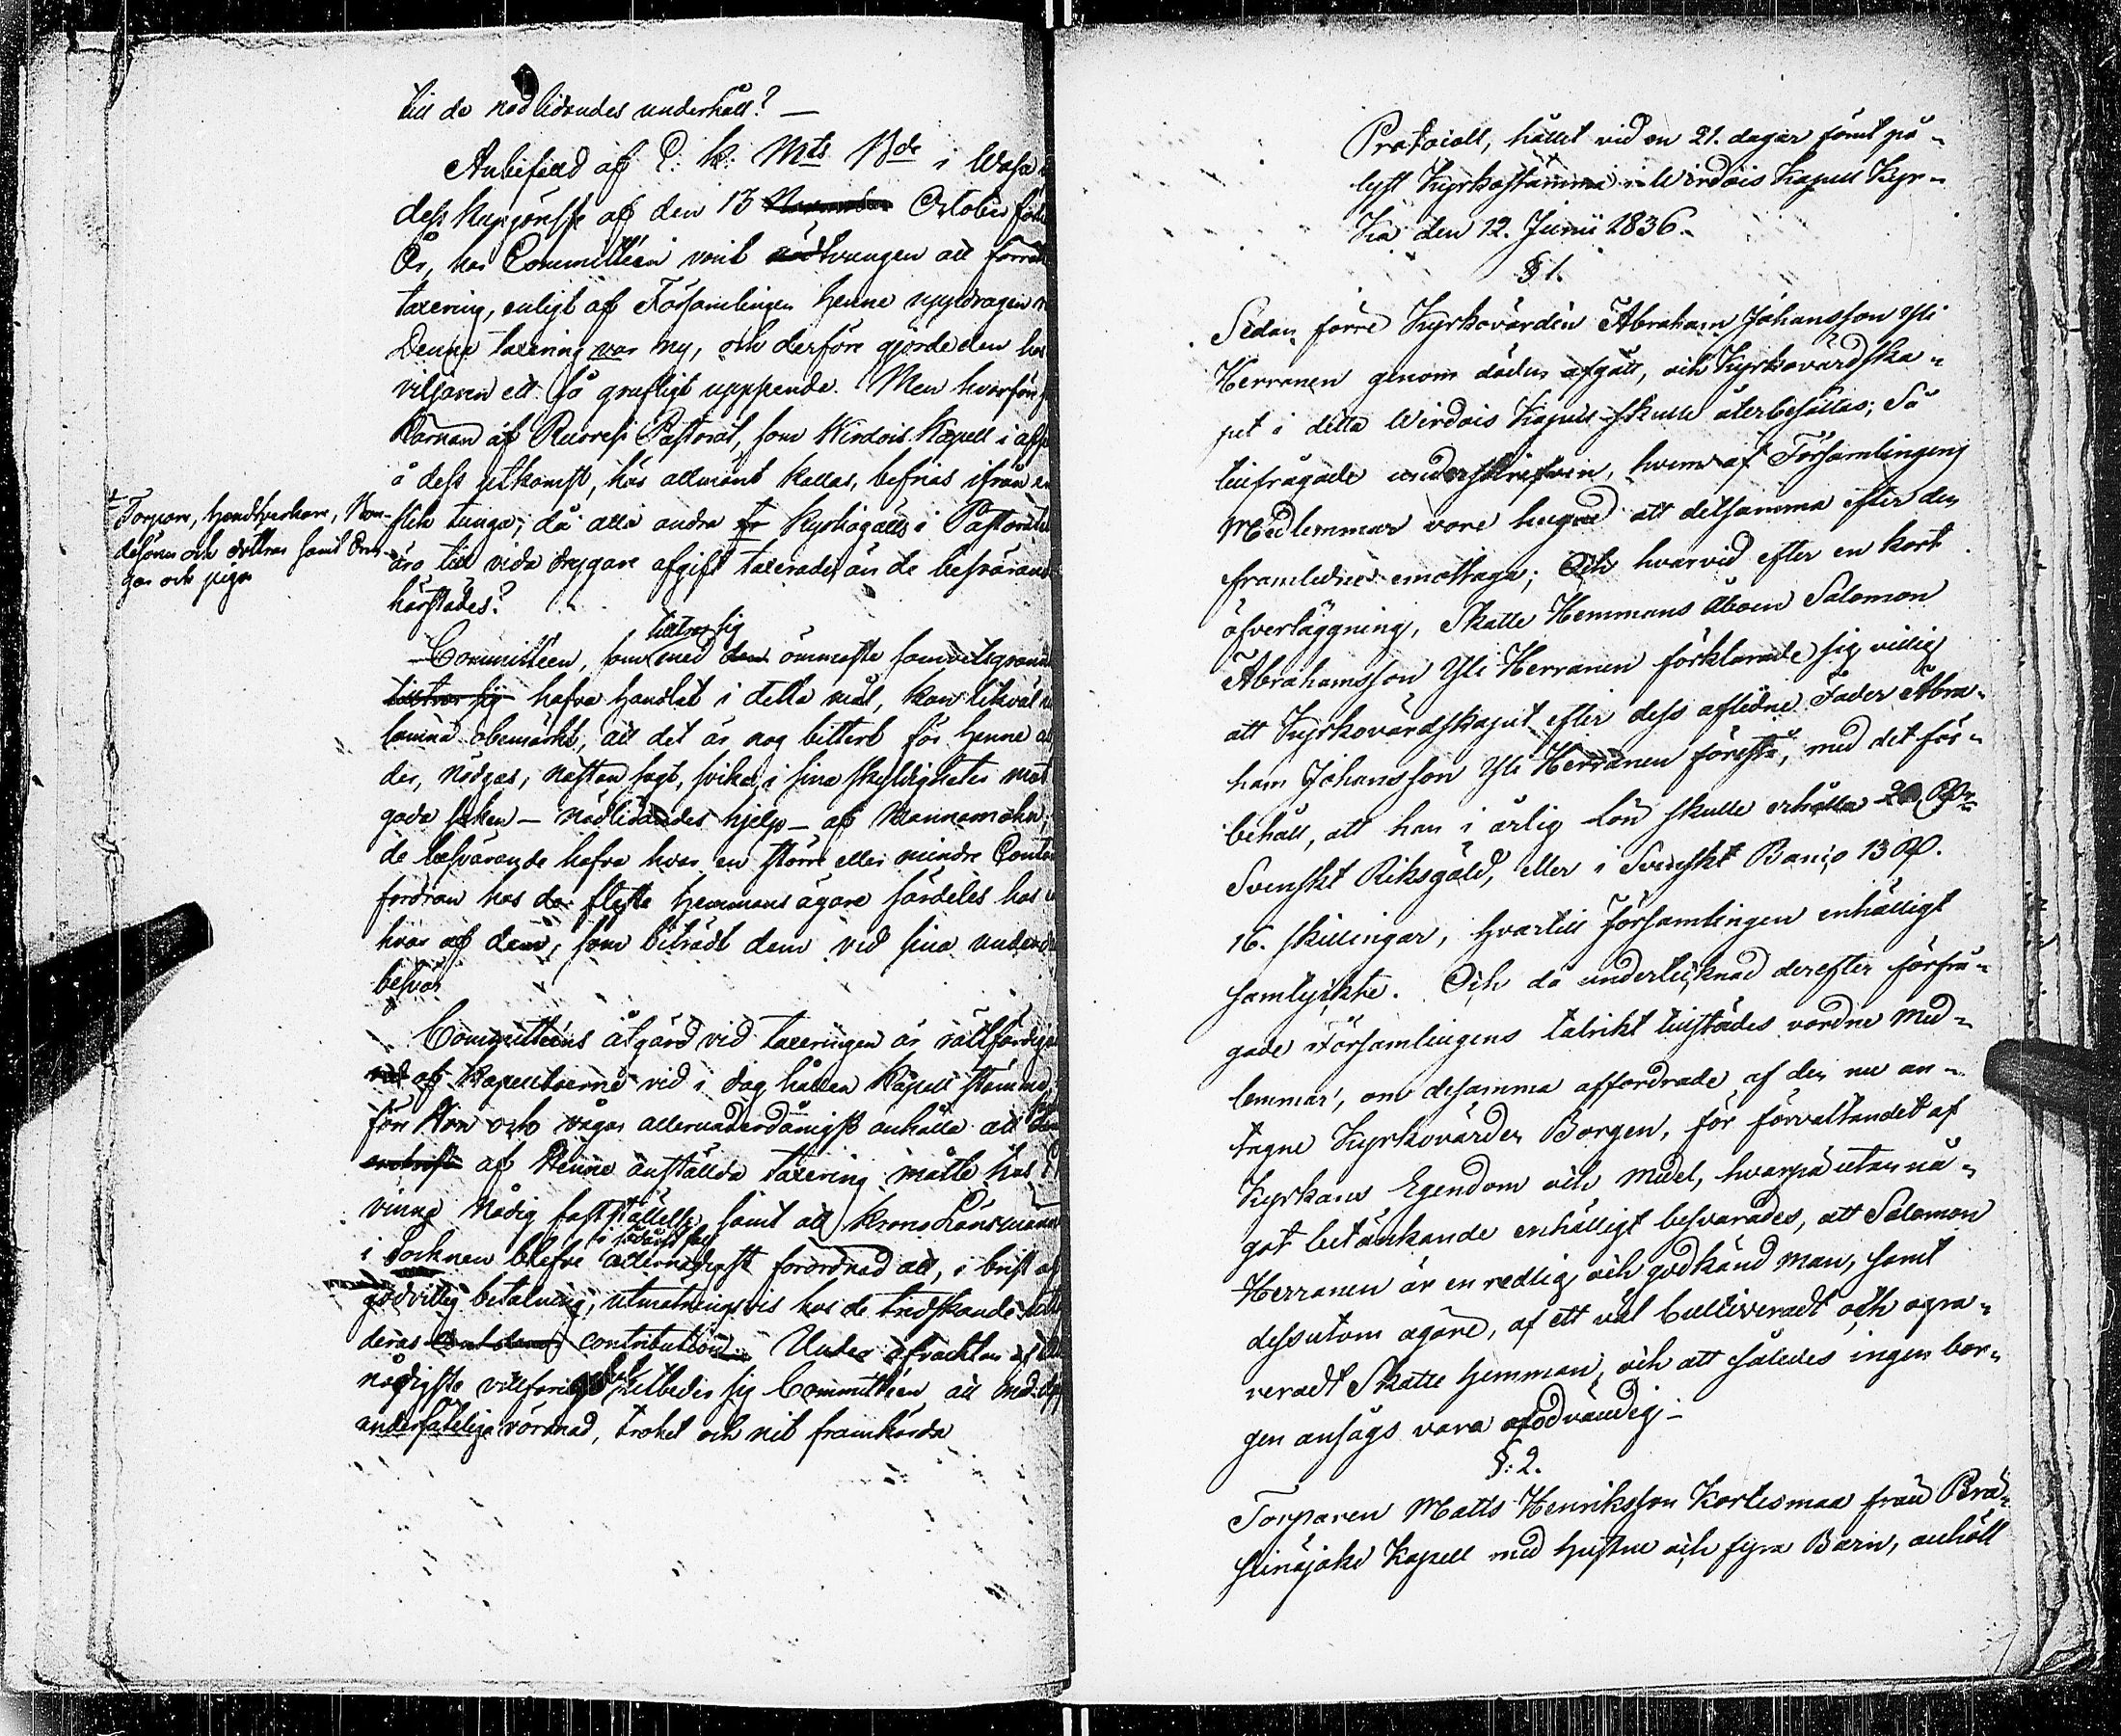 till de nödlidandes underhåll? —
Anbefald af E: K: Mts Bde i Wasa
dess kungörelse af den 13 November October
År, har Committéen varit nödtvungen att förrätta
taxering, enligt af Församlingen henne uppdragen
Denna taxering var ny, och derföre gjorde den hos
viljaren ett så grufligt uppseende. Men hvarföre
kärnan af Ruovesi Pastorat, som Wirdois Kapell i afseende
å dess utkomst, hos allmänt kallas, befrias ifrån en
slik tunga, då alla andra Kyrkogälls i Pastoratet
äro till vida drygare afgift taxerade, än de besvärande
härstädes?
+ Torpare, Handtverkare, Bon-
desöner och döttrar samt drän-
gar och pigor
tilltror sig
Committéen, som med den ömmaste samvetsgranhet
tilltror sig hafva handlat i detta mål, kan likväl
lämna obemärkt, att det är nog bittert för henne
der, nödgas, nästan sagt, svika i sina skyldigheter mot
goda saken — nödlidandes hjelp — af Mannamohn,
de besvärande hafva hvar en större eller mindre
fordran hos de fleste Hemmans ägare särdeles hos
hvar af dem, som biträdt dem vid sina
besvär
Committéens åtgärd vid taxeringen är rättfärdigad
af Kapellboerne vid i dag hållen Kapell stämma,
för Hon och vågar allerunderdånigst anhålla att
af denne anställda taxering måtte hos
vinna Nådig fastställelse, samt att Krono Länsmannen
i sådant fall
i Socknen blefve allernådigst förordnad att, i brist af
godvillig betalning, utmätningsvis hos de tredskande
deras contribution. Under afvacktan af
nådigste villfarighet utbeder sig Committéen att med
undersåtelig vördnad, trohet och nit framhärda
Protocoll, hållit vid en 21. dagar förut på-
lyst Kyrkostämma i Wirdois Kapell Kyr-
ka den 12. Junii 1836.
§ 1.
Sedan förre Kyrkovärden Abraham Johansson Yli
Herranen genom döden afgått, och Kyrkovärdska-
pet i detta Wirdois Kapell skulle återbesättas; Så
tillfrågade underskrefven, hvem af Församlingens
Medlemmar vore hugad att detsamma efter den
framledne emottaga; Och hvarvid efter en kort
öfverläggning, Skatte Hemmans Åboen Salomon
Abrahamsson Yli Herranen förklarade sig villig
att Kyrkovärdskapet efter dess aflidne Fader Abra-
ham Johansson Yli Herranen förestå, med det för-
behåll, att han i årlig lön skulle erhålla 20 Rdr
Svenskt Riksgäld, eller i Svenskt Banco 13 Rdr.
16. skillingar, hvartill Församlingen enhälligt
samtyckte. Och då undertecknad derefter förfrå-
gade Församlingens talrikt tillstädes vordne Med-
lemmar, om desamma affordrade af den nu an-
tagne Kyrkovärden Borgen, för förvaltandet af
Kyrkans Egendom och Medel, hvarpå utan nå-
got betänkande enhälligt besvarades, att Salomon
Herranen är en redlig och godkänd man, samt
dessutom ägare, af ett väl cultiveradt och ogra-
veradt Skatte Hemman, och att således ingen bor-
gen ansågs vara nödvändig —
§: 2.
Torparen Matts Henriksson Kortesmaa från Perä-
seinäjoki Kapell med Hustru och fyra Barn, anhöll